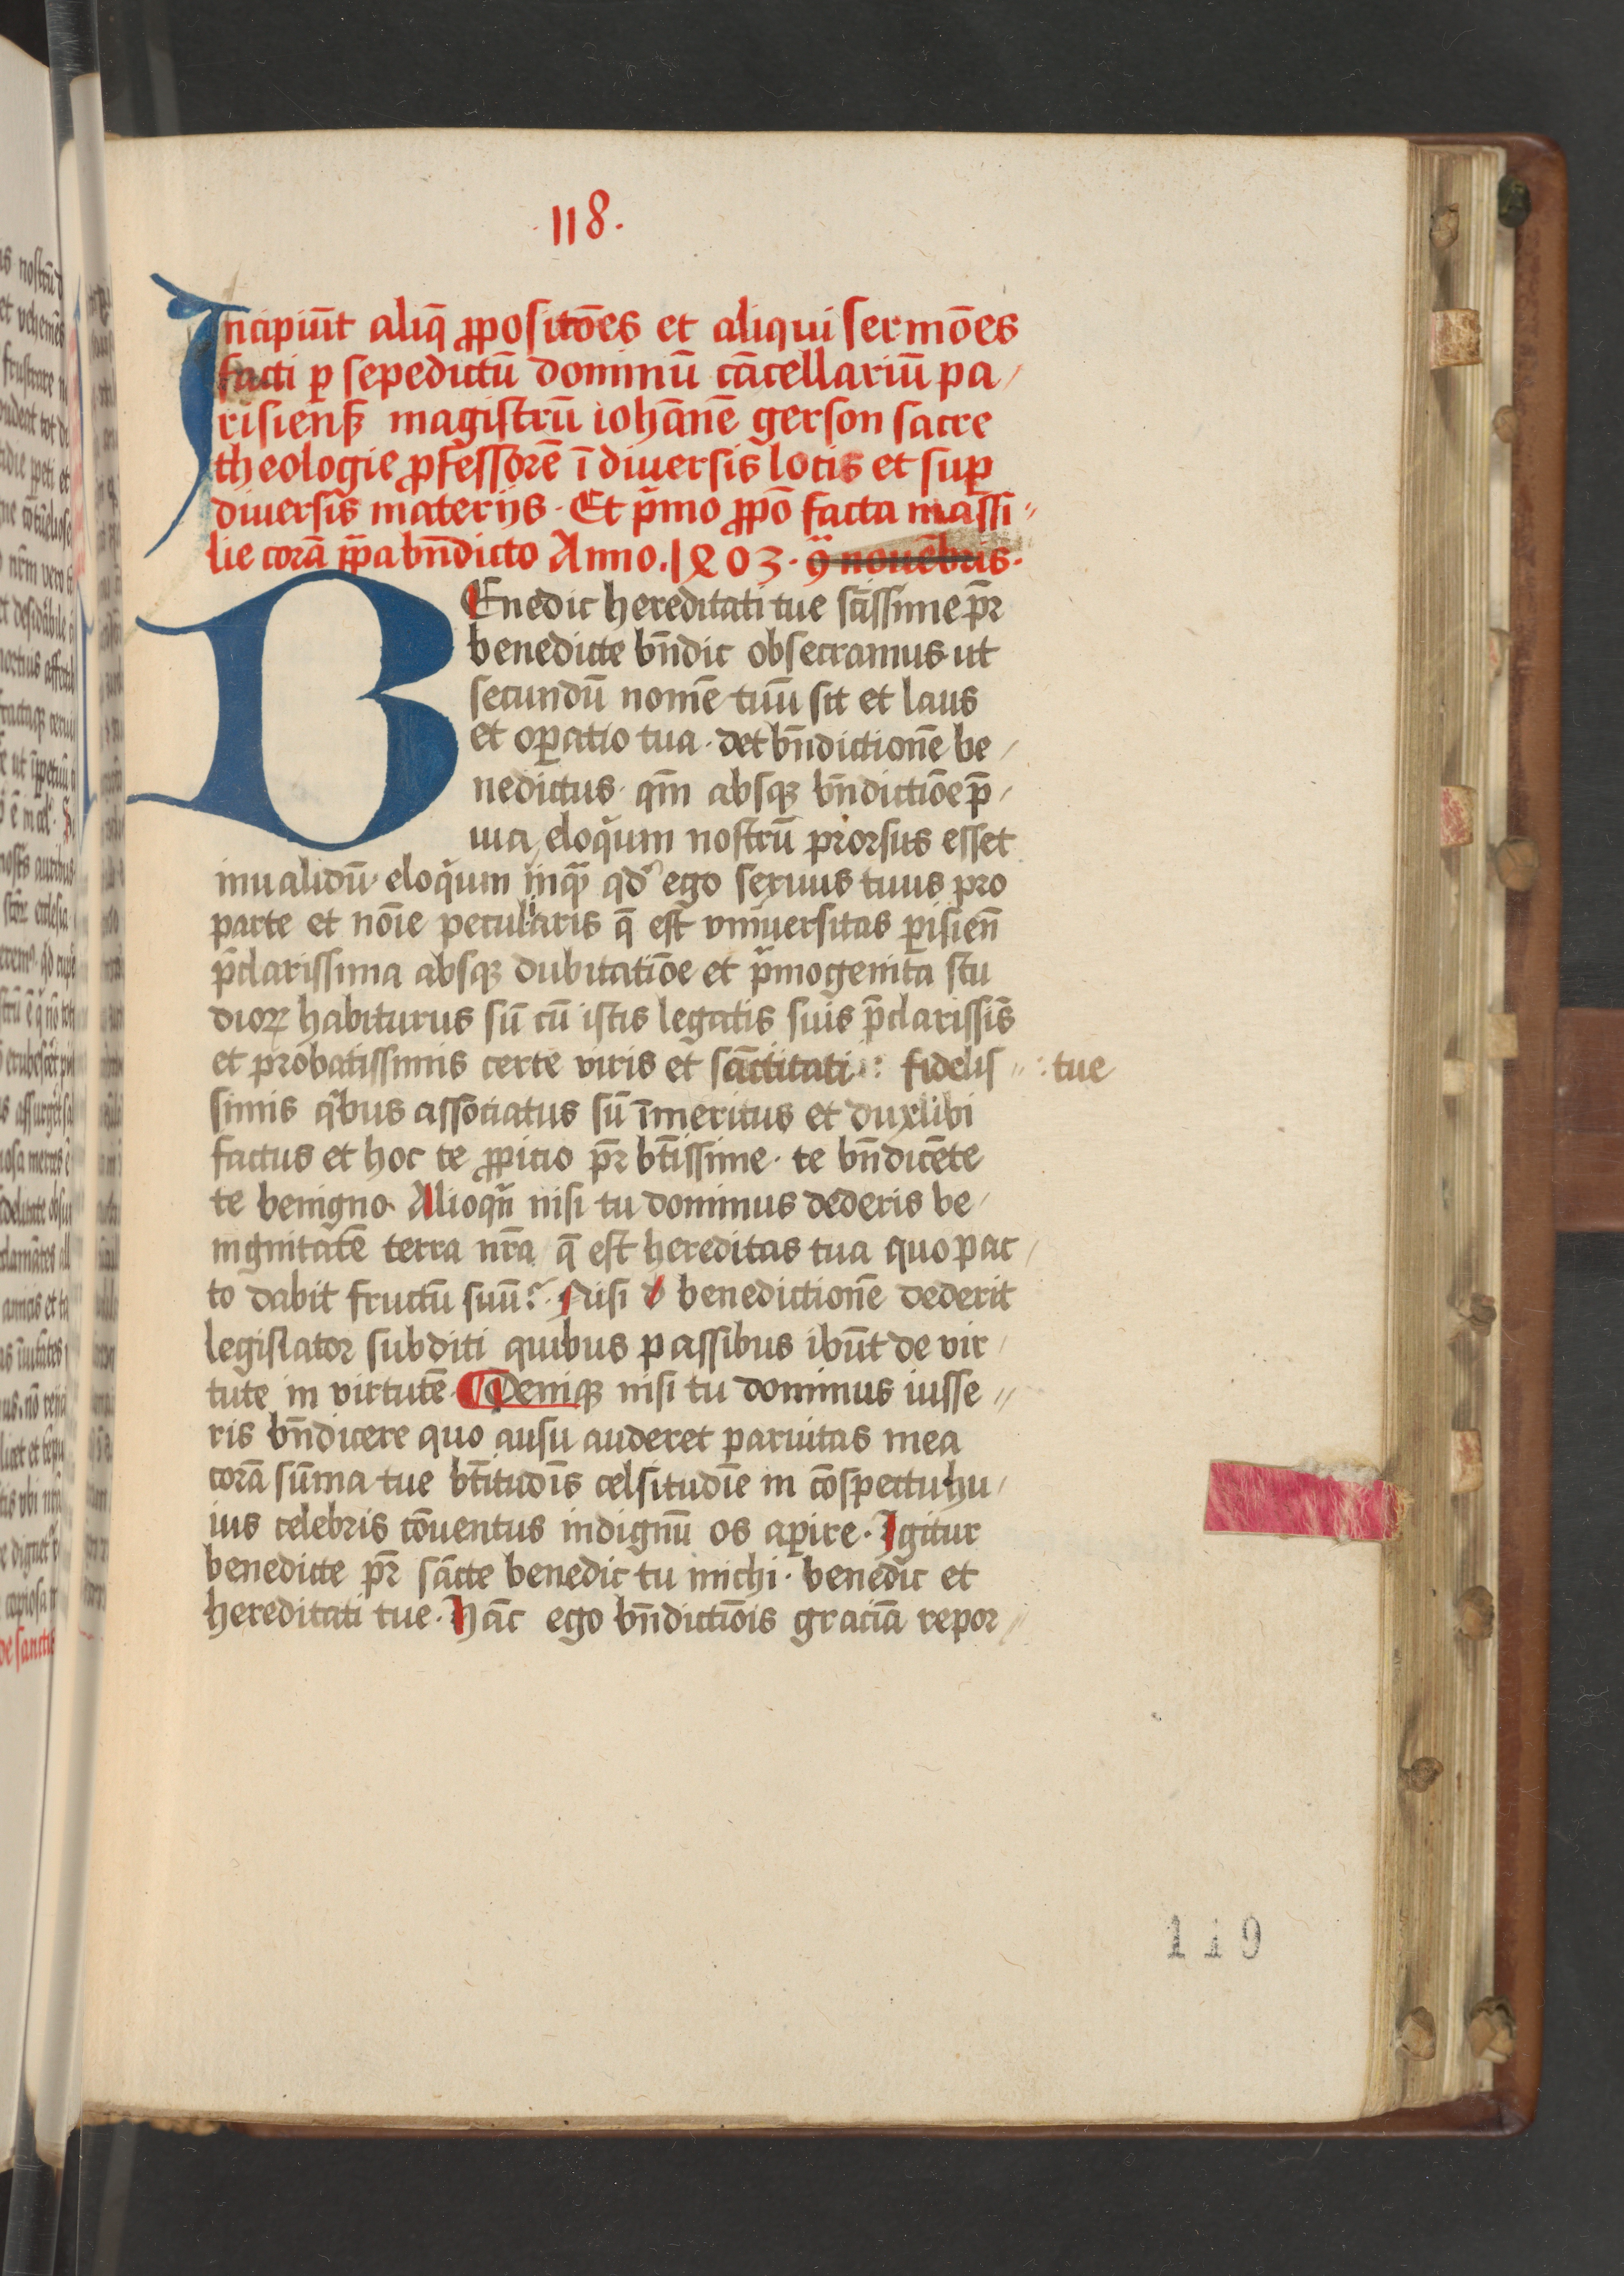 ·118·
Incipiūt aliq̄ ꝓpositōes et aliqui sermōes
facti ꝑ sepedictū dominū cācellariū pa/
risienß magistrū iohānē gerson sacre
theologie ꝓfessorē ī diuersis locis et suꝑ
diuersis materijs · Et p̄mo ꝓpō facta massi//
lie corā pp̄a bn̄dicto Anno · 1403 · 9ᵃ nouēbris ·
BEnedic hereditati tue sc̄issime pr̄
benedicte bn̄dic obsecramus ut
secundū nomē tuū sit et laus
et oꝑatio tua · det bn̄dictionē be/
nedictus · qm̄ absqꝫ bn̄dictiōe p̄/
uia eloq̄ium nostrū prorsus esset
inualidū eloq̄ium inqͣ qd̓ ego seruus tuus pro
parte et nōie peculiaris q̄ est vniuersitas ꝑisien̄
p̄clarissima absqꝫ dubitatiōe et p̄mogenita stu
dioꝝ habiturus sū cū istis legatis suis p̄clarissīs
et probatissimis certe viris et sāctitati : fidelis // : tue
simis qͥbus associatus sū īmeritus et dux sibi
factus et hoc te ꝓpicio pr̄ bt̄issime · te bn̄dicēte
te benigno · Alioqͥn nisi tu dominus dederis be/
nignitatē terra nr̄a q̄ est hereditas tua quo pac/
to dabit fructū suū? · Nisi d benedictionē dederit
legislator subditi quibus passibus ibūt de vir/
tute in virtutē · ¶ Deniqꝫ nisi tu dominus iusse//
ris bn̄dicere quo ausu auderet paruitas mea
corā sūma tue bt̄itudīs celsitudīe in cōspectu hu/
ius celebris cōuentus indignū os aꝑire · Igitur
benedicte pr̄ sācte benedic tu michi · benedic et
hereditati tue · Hāc ego bn̄dictiōis graciā repor/
119